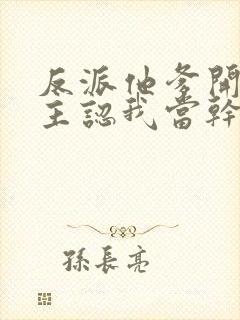 反派他爹開
主認我當幹
孫長亮